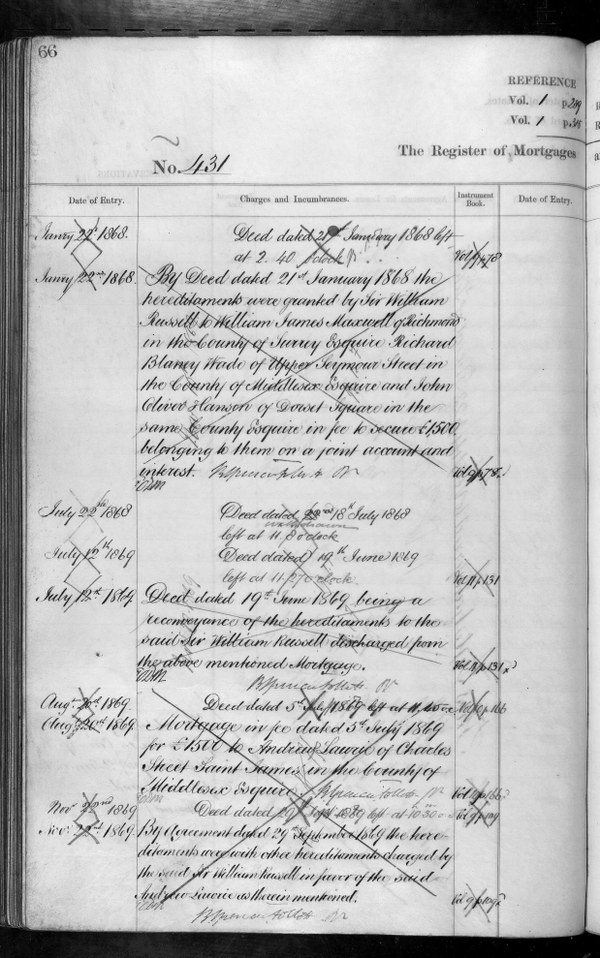 66
REFERENCE
Vol. 1 p. 289
Vol. 1 p.
No. 431
The Register of Mortgages
Date of Entry.
Charges and Incumbrances.
Instrument Book.
Date of Entry.
Janry 22d 1868.
Deed dated 21st January 1868 left
at 2. 40. o'clock
p 78
Janry 22nd 1868.
By Deed dated 21st January 1868 the
hereditaments were granted by Sir William
Russell to William James Maxwell of Richmond
in the County of Surrey Esquire Richard
Blaney Wade of Upper Seymour Street in
the County of Middlesex Esquire and John
Oliver Hanson of Dorset Square in the
same County Esquire in fee to secure £1500
belonging to them on a joint account and
interest. Brent Spencer Follett Rr
p 78.
July 22nd 1868
Deed dated 18th July 1868
withdrawn
left at 11. o'clock
July 12th 1869
Deed dated 19th June 1869
left at 11. o'clock
Vol 11 p 131
July 12th 1869.
Deed dated 19th June 1869 being a
reconveyance of the hereditaments to the
said Sir William Russell discharged from
the above mentioned Mortgage.
Vol 11 p 131
B Spencer Follett Rr
Augt 20th 1869.
Deed dated 5th July 1869 left at 11,45
p 166
Augt 20th 1869.
Mortgage in fee dated 5th July 1869
for £1500 to Andrew Lawrie of Charles
Street Saint James in the County of
Middlesex Esquire. B Spencer Follett Rr
p 166
Novr 22nd 1869
Deed dated 29 Sept 1869 left at 10.30
p 109
Novr 22nd 1869.
By Agreement dated 29th September 1869 the here-
ditaments were with other hereditaments charged by
the said Sir William Russell in favor of the said
Andrew Lawrie as therein mentioned.
p 109
B Spencer Follett Rr